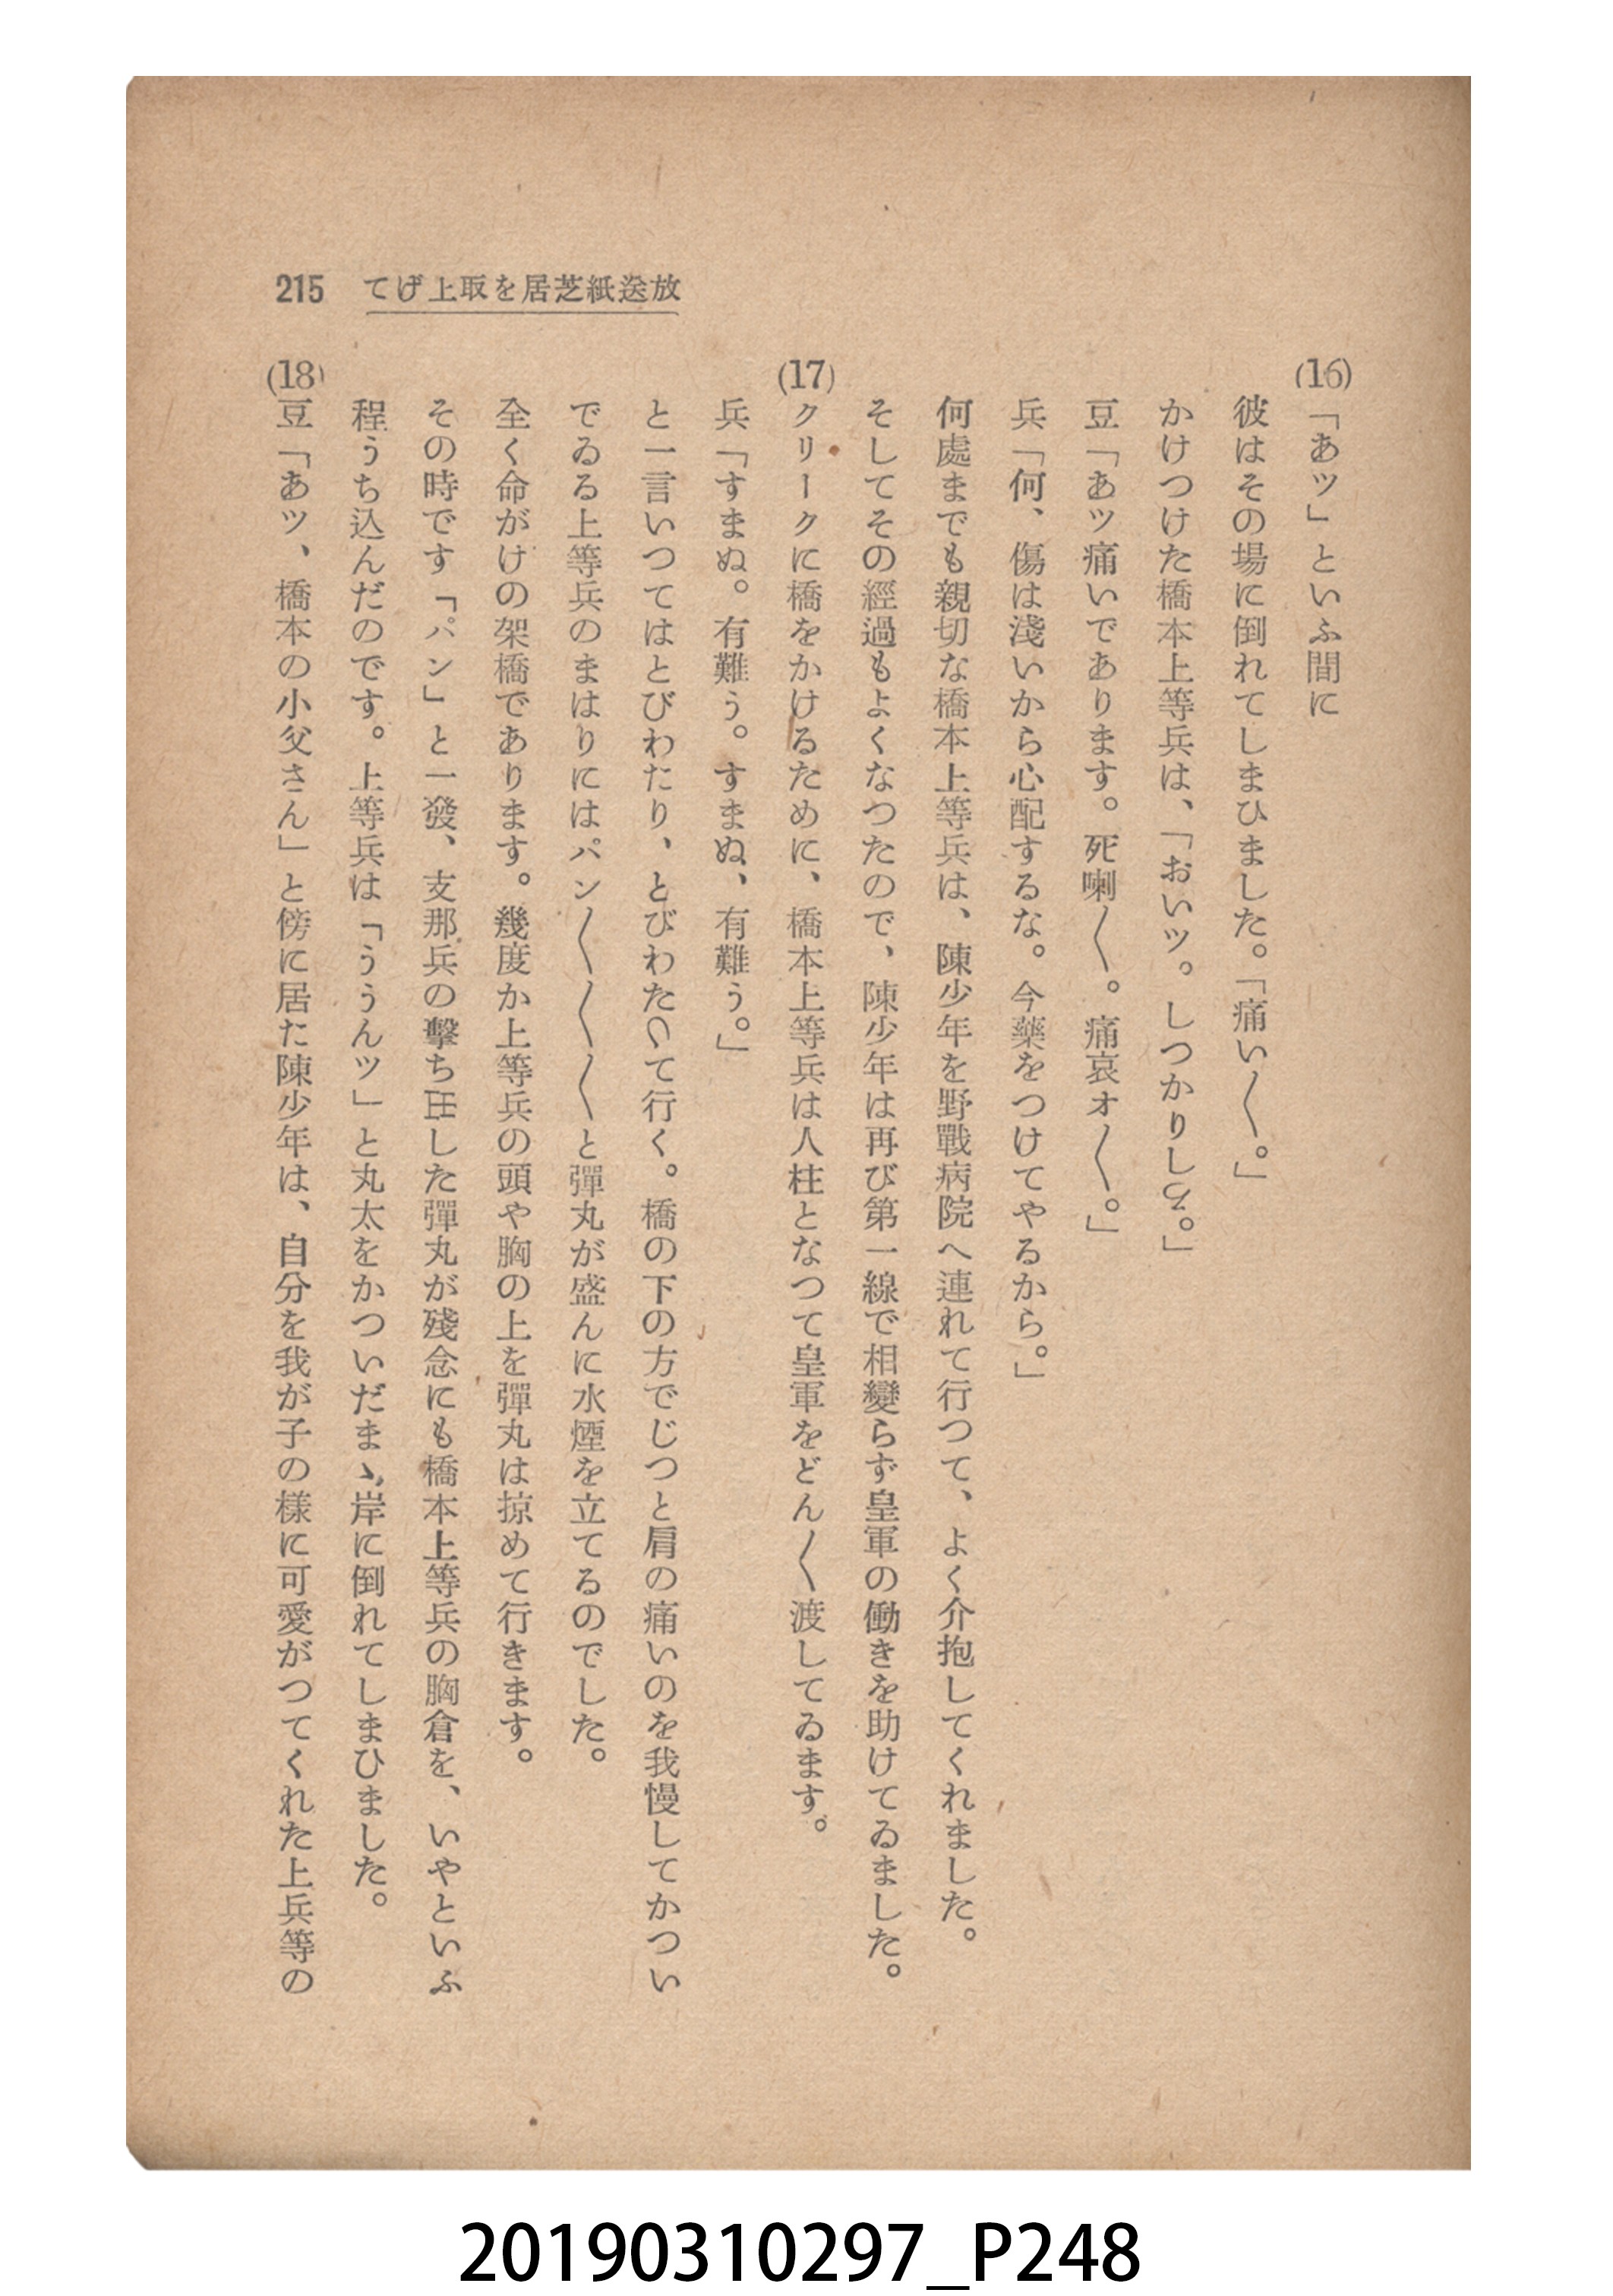 215　てげ上取を居芝紙送放
(16)「あツ」といふ間に
彼はその場に倒れてしまひました。「痛い〱。」
かけつけた橋本上等兵は、「おいツ。しつかりしろ。」
豆「あツ痛いであります。死喇〱。痛哀オ〱。」
兵「何、傷は淺いから心配するな。今藥をつけてやるから。」
何處までも親切な橋本上等兵は、陳少年を野戰病院へ連れて行つて、よく介抱してくれました。
そしてその經過もよくなつたので、陳少年は再び第一線で相變らず皇軍の働きを助けてゐました。
(17)クリークに橋をかけるために、橋本上等兵は人柱となつて皇軍をどん〱渡してゐます。
兵「すまぬ。有難う。すまぬ、有難う。」
と一言いつてはとびわたり、とびわたつて行く。橋の下の方でじつと肩の痛いのを我慢してかつい
でゐる上等兵のまはりにはパン〱〱〱と彈丸が盛んに水煙を立てるのでした。
全く命がけの架橋であります。幾度か上等兵の頭や胸の上を彈丸は掠めて行きます。
その時です「パン」と一發、支那兵の擊ち出した彈丸が殘念にも橋本上等兵の胸倉を、いやといふ
程うち込んだのです。上等兵は「ううんツ」と丸太をかついだまゝ岸に倒れてしまひました。
(18)豆「あツ、橋本の小父さん」と傍に居た陳少年は、自分を我が子の樣に可愛がつてくれた上兵等の
20190310297_P248